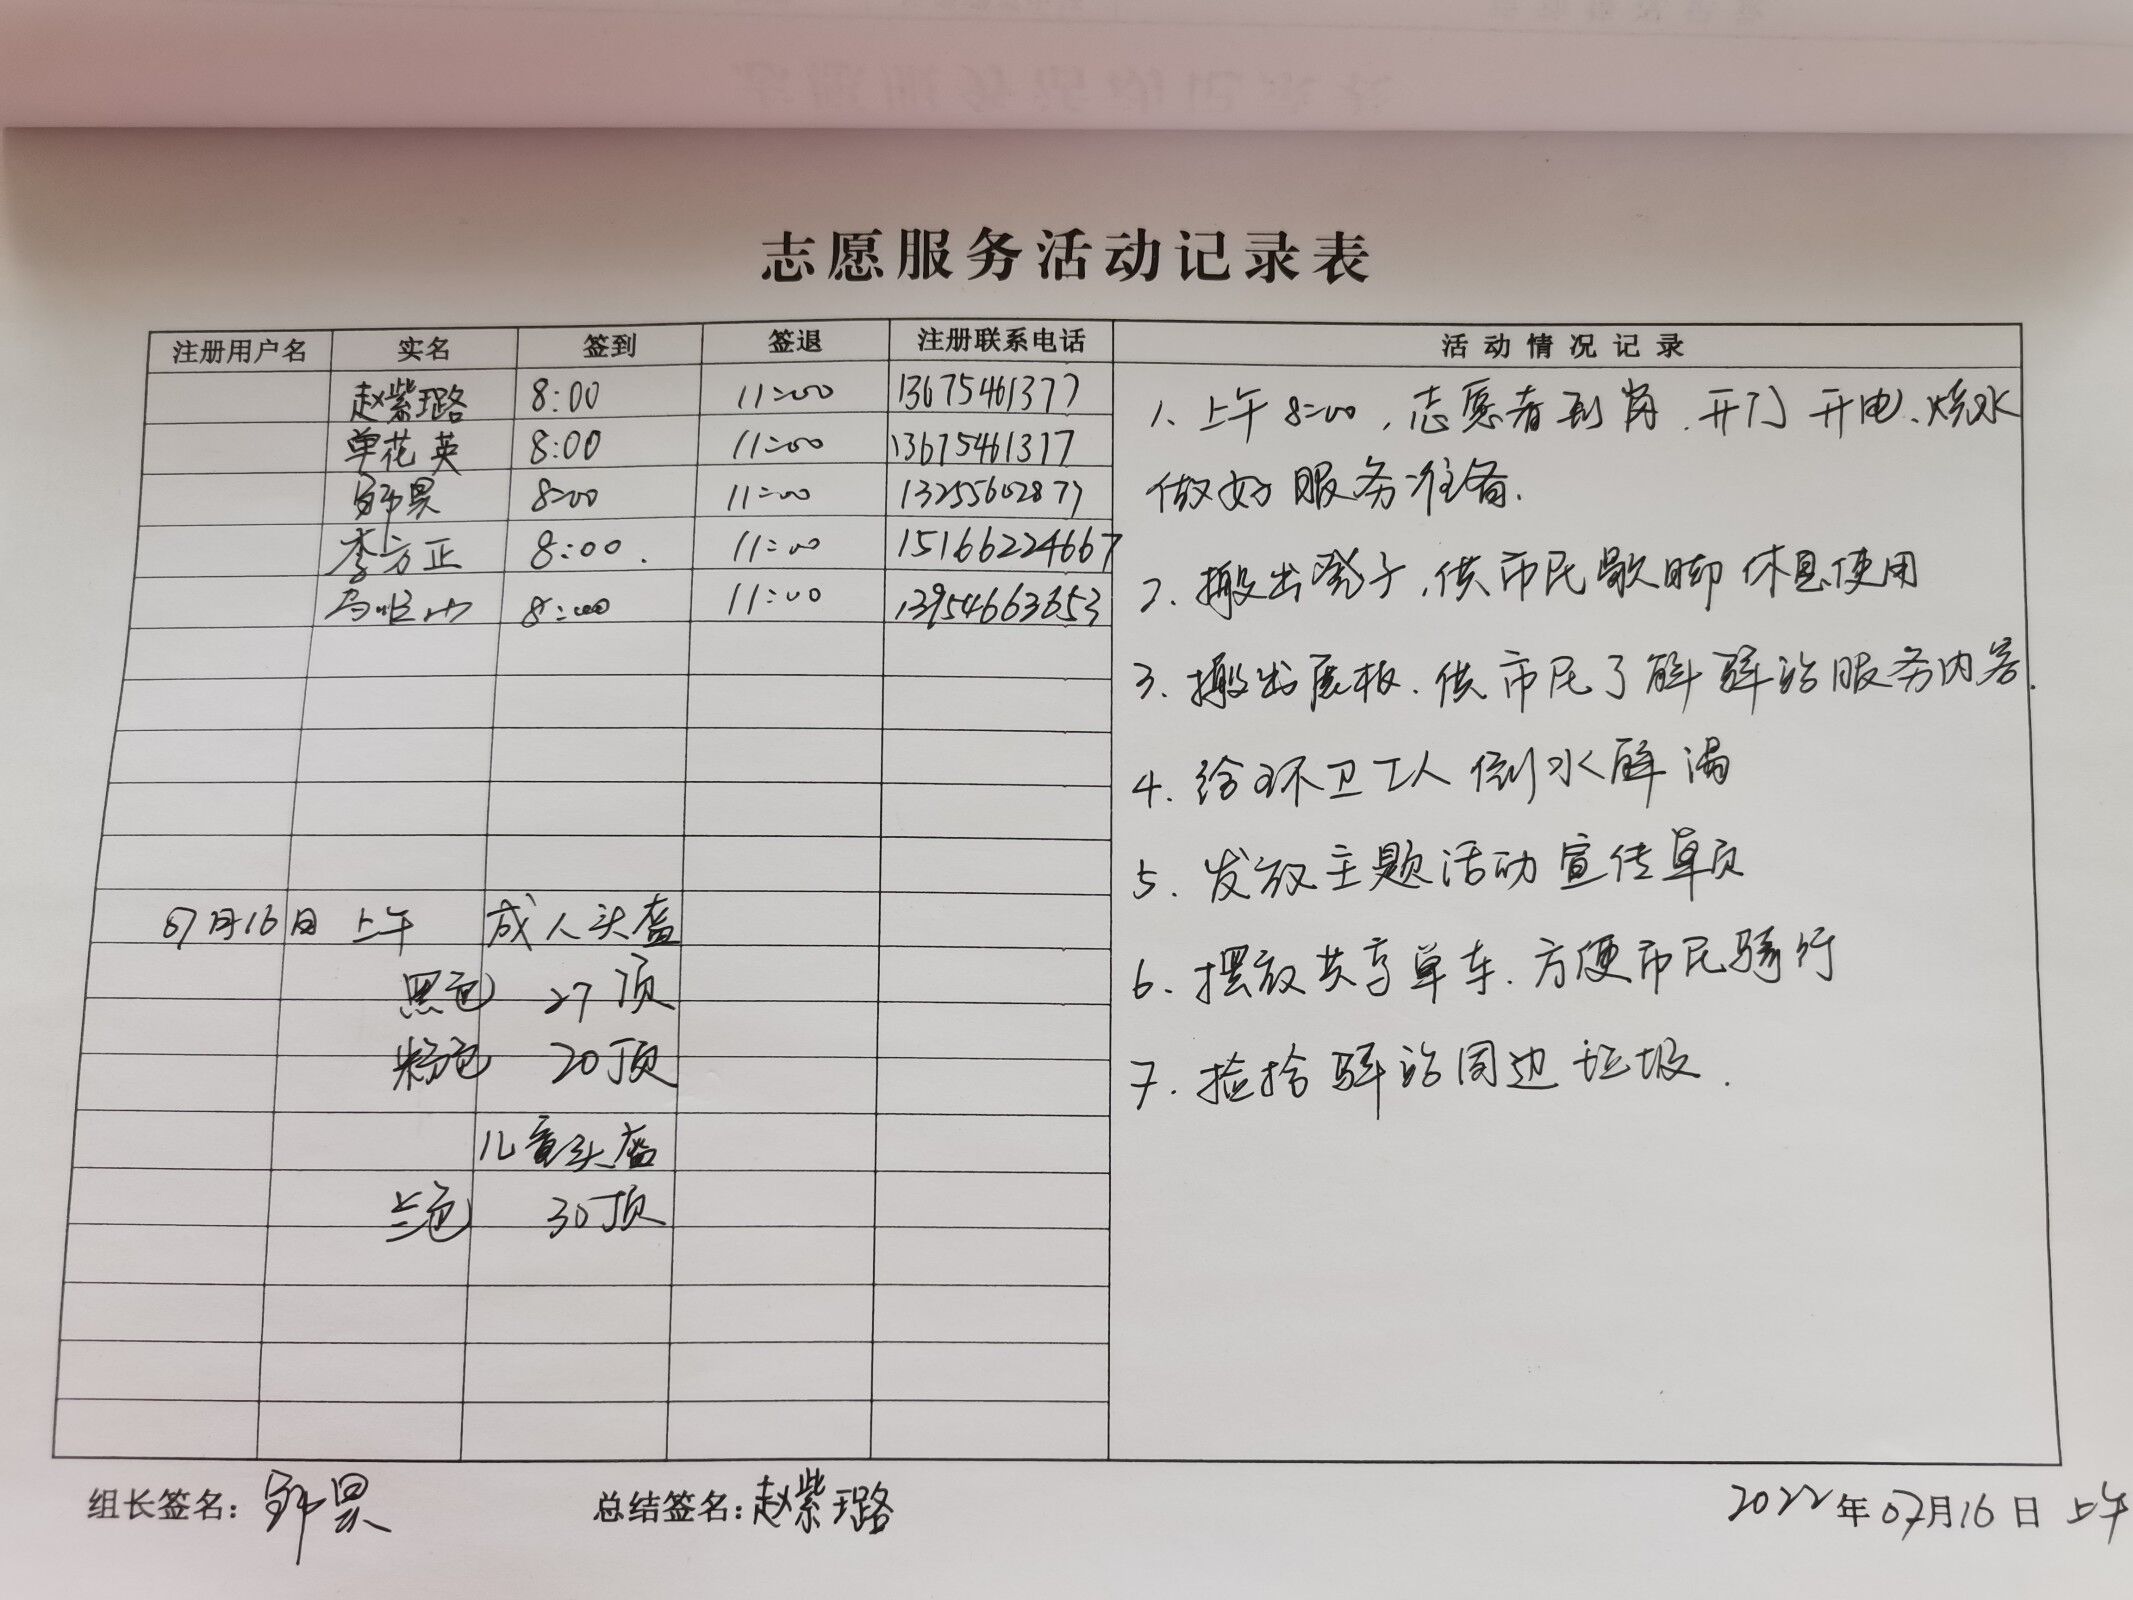 志愿服务活动记录表
注册用户名 实名 签到 签退 注册联系电话 活动情况记录
赵紫璐 8:00 11:00 13675461377
单花英 8:00 11:00 13675461377
昊 8:00 11:00 13255602877
李方正 8:00. 11:00 15166224667
8:00 11:00 13954663653
07月16日 上午 成人头盔
黑色 27顶
粉色 20顶
儿童头盔
兰色 30顶
1、上午8:00,志愿者到岗.开门开电、烧水
做好服务准备.
2、搬出凳子,供市民歇脚休息使用
3、搬出展板.供市民了解驿站服务内容.
4.给环卫工人倒水解渴
5.发放主题活动宣传单页
6.摆放共享单车.方便市民骑行
7.捡拾驿站周边垃圾.
组长签名: 昊 总结签名:赵紫璐 2022年07月16日 上午